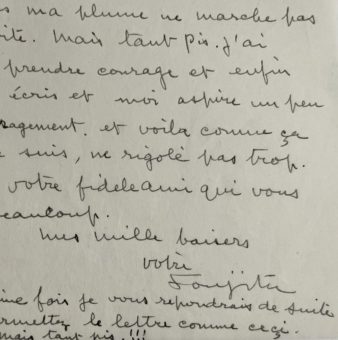 ma plume ne marche pas
vite. Mais tant pis. j'ai
prendre courage et enfin
écris et moi aspire un peu
ragement. et voila comme ça
suis, ne rigolé pas trop.
votre fidele ami qui vous
eaucoup.
mes mille baisers
votre
Foujita
ine fois je vous repondrais de suite
ermettez le lettre comme ceçi.
mais tant pis!!!